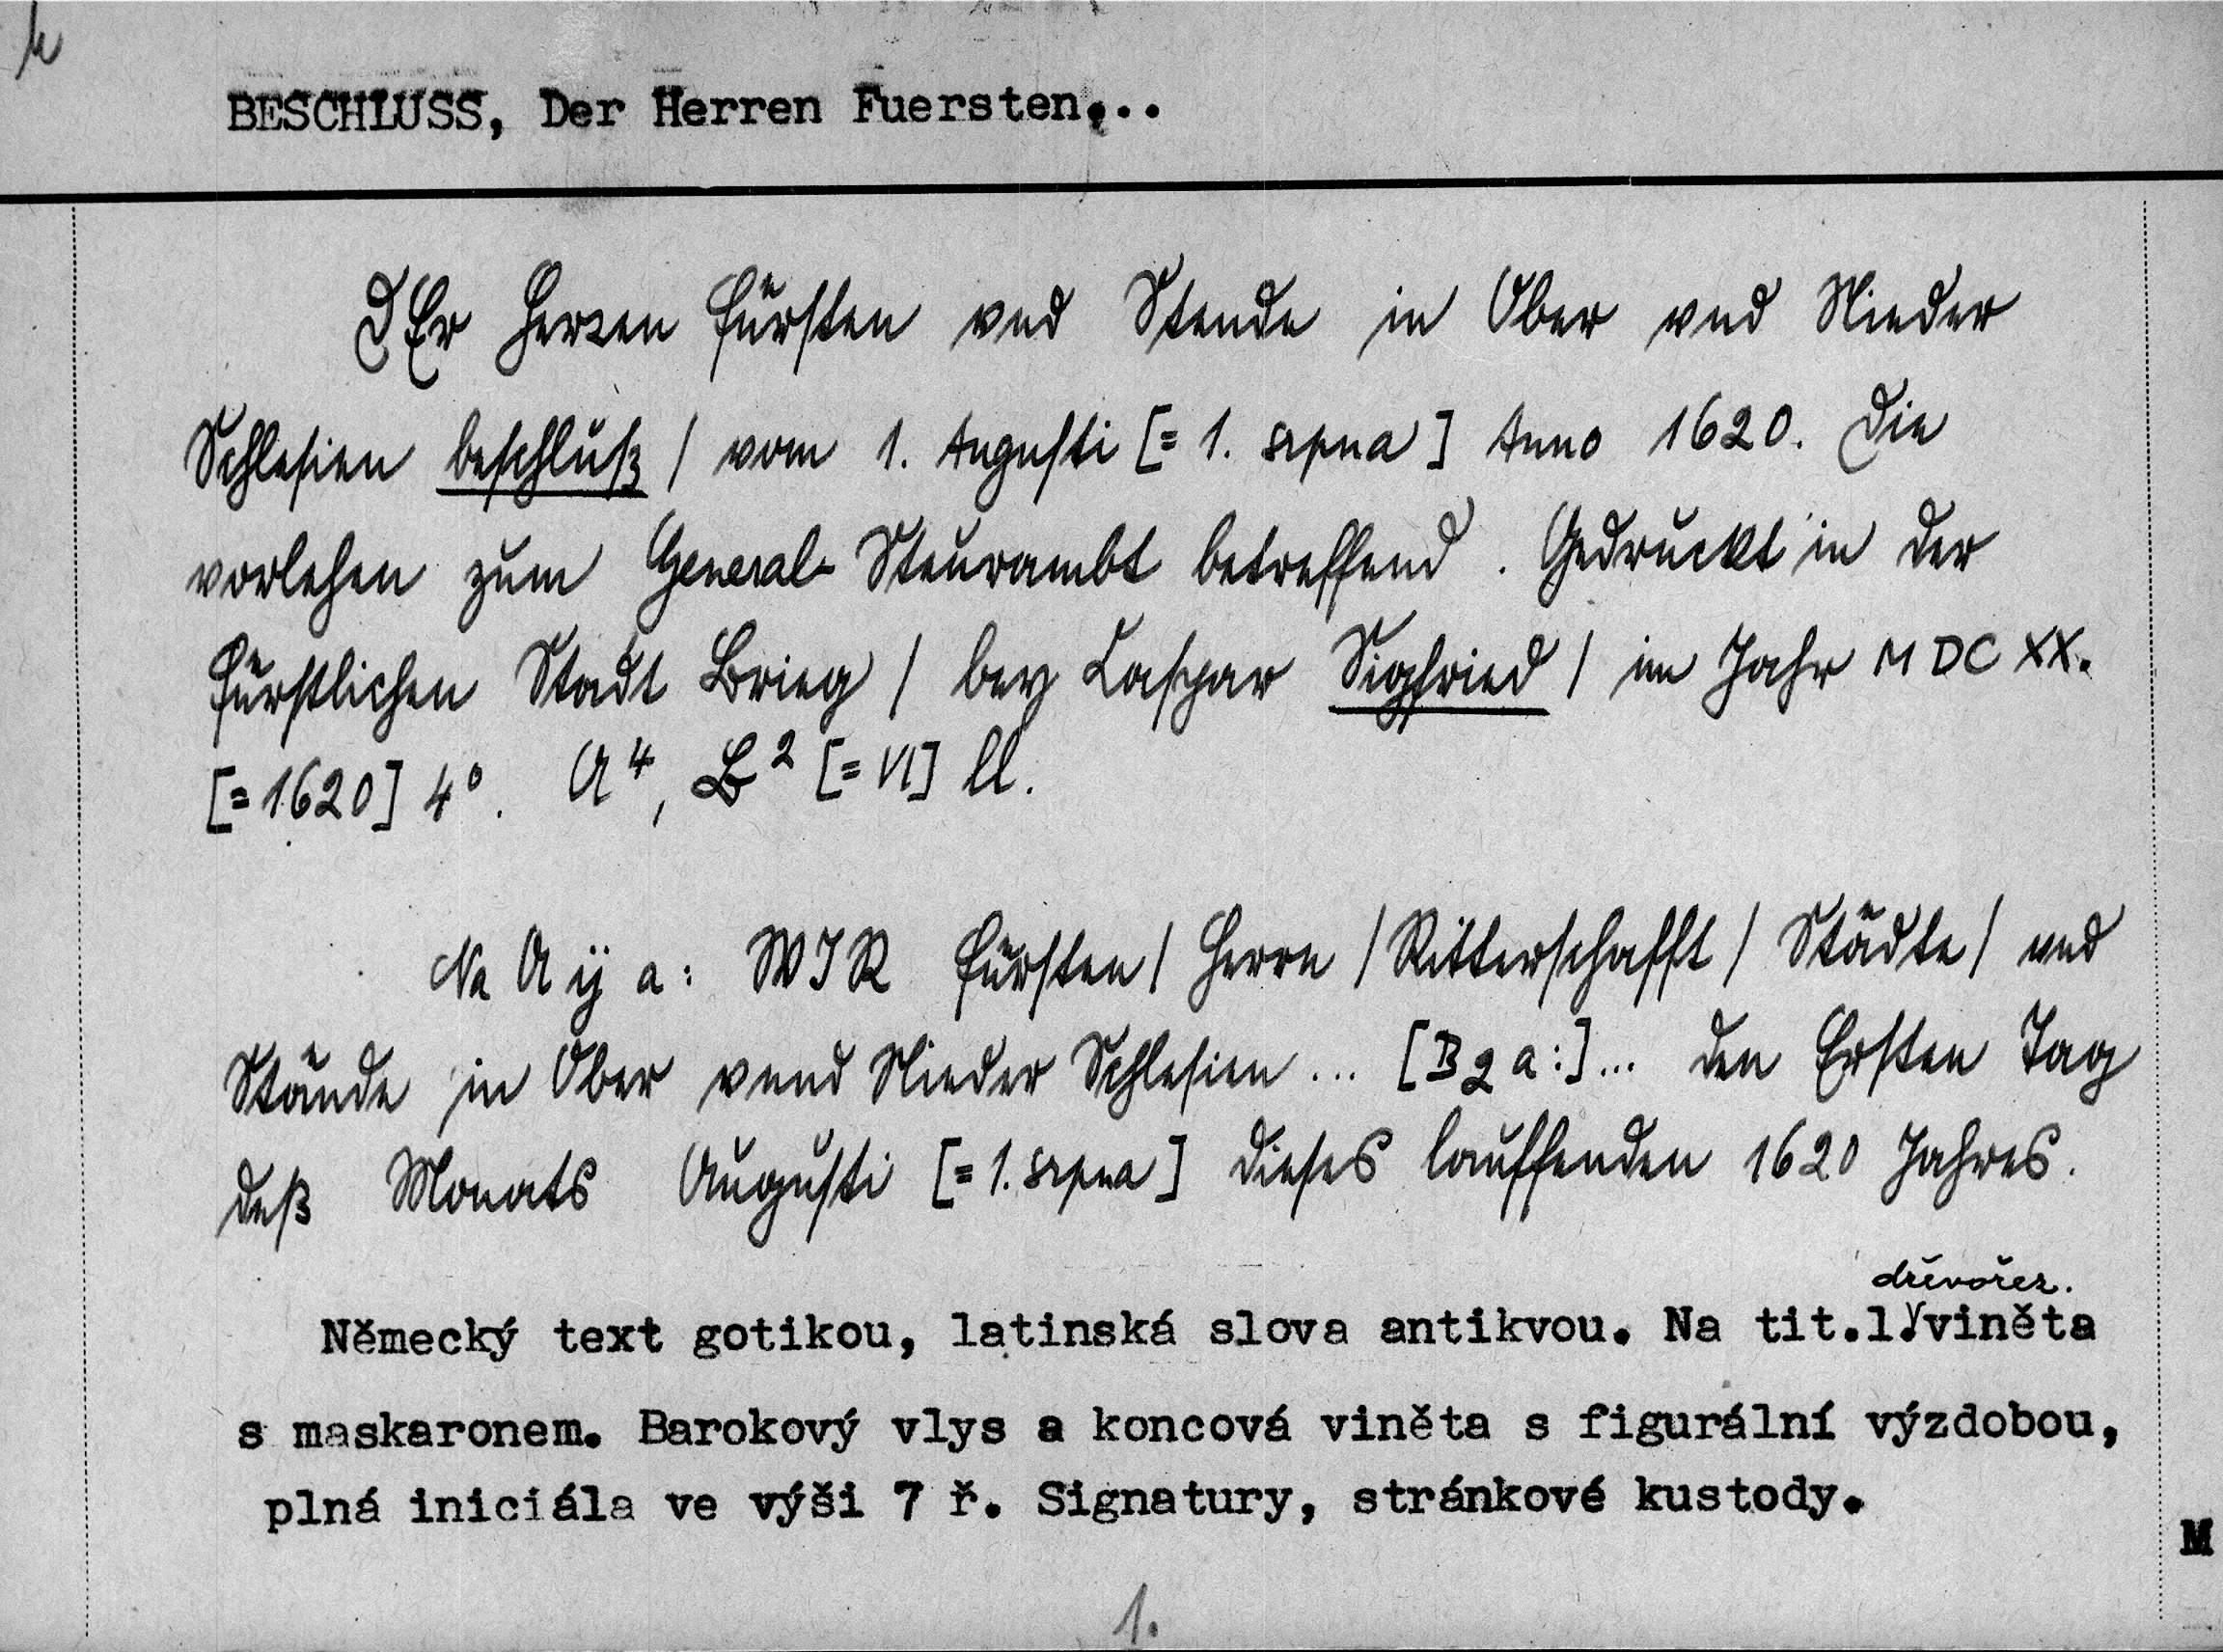 BESCHLUSS, Der Herren Fuersten...
DEr Herren Fürsten vnd Stende in Ober vnd Nieder
Schlesien beschluß / vom 1. Augusti [= 1. srpna] Anno 1620. Die
vorlehen zum General-Steurambt betreffend. Gedruckt in der
Fürstlichen Stadt Brieg / bey Caspar Siegfried / im Jahr MDCXX.
[=1620] 4°. A⁴, B² [= VI] ll.
Na A ij a: WIR Fürsten / Herrn / Ritterschafft / Städte / vnd
Stände in Ober vnnd Nieder Schlesien ... [B 2 a:] ... den Ersten Tag
deß Monats Augusti [= 1. srpna] dieses lauffenden 1620 Jahres.
dřevořez.
Německý text gotikou, latinská slova antikvou. Na tit.l. viněta
s maskaronem. Barokový vlys a koncová viněta s figurální výzdobou,
plná iniciála ve výši 7 ř. Signatury, stránkové kustody.
M
1.